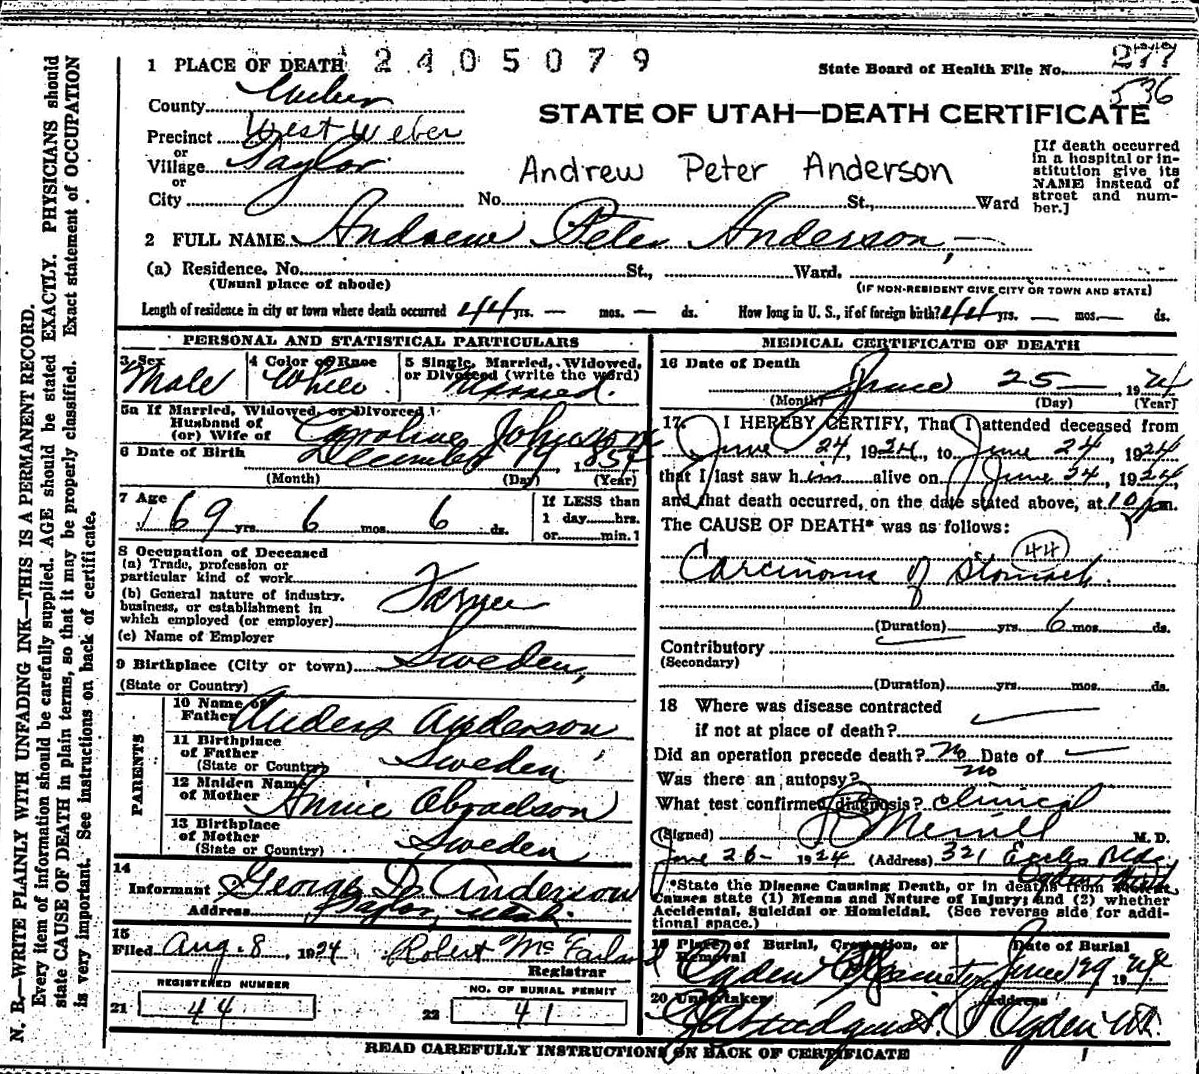 1 PLACE OF DEATH 2405079
State Board of Health File No. 277
536
County Weber
STATE OF UTAH—DEATH CERTIFICATE
Precinct West Weber
or
Village Taylor
or
City No. St., Ward
Andrew Peter Anderson
[If death occurred
in a hospital or in-
stitution give its
NAME instead of
street and num-
ber.]
2 FULL NAME Andrew Peter Anderson,
(a) Residence. No. St., Ward.
(Usual place of abode) (IF NON-RESIDENT GIVE CITY OR TOWN AND STATE)
Length of residence in city or town where death occurred 44 yrs. — mos. — ds. How long in U. S., if of foreign birth? 44 yrs. — mos. — ds.
PERSONAL AND STATISTICAL PARTICULARS
3 Sex 4 Color or Race 5 Single, Married, Widowed,
or Divorced (write the word)
Male White Married.
5a If Married, Widowed, or Divorced
Husband of
(or) Wife of Caroline Johnson
6 Date of Birth December 19 1854
(Month) (Day) (Year)
7 Age 69 yrs. 6 mos. 6 ds.
If LESS than
1 day......hrs.
or......min.
8 Occupation of Deceased
(a) Trade, profession or
particular kind of work
(b) General nature of industry,
business, or establishment in
which employed (or employer) Farmer
(c) Name of Employer
9 Birthplace (City or town) Sweden,
(State or Country)
PARENTS
10 Name of
Father Anders Anderson
11 Birthplace
of Father
(State or Country) Sweden
12 Maiden Name
of Mother Annie
13 Birthplace
of Mother
(State or Country) Sweden
14
Informant George D. Anderson
Address Taylor, Utah.
15
Filed Aug. 8, 1924 Robert McFarland
Registrar
REGISTERED NUMBER NO. OF BURIAL PERMIT
21 44 22 41
MEDICAL CERTIFICATE OF DEATH
16 Date of Death
June 25— 1924
(Month) (Day) (Year)
17. I HEREBY CERTIFY, That I attended deceased from
June 24, 1924, to June 24, 1924
that I last saw him alive on June 24, 1924,
and that death occurred, on the date stated above, at 10 pm.
The CAUSE OF DEATH* was as follows:
44
Carcinoma of Stomach.
(Duration) yrs. 6 mos. ds.
Contributory
(Secondary)
(Duration) yrs. mos. ds.
18 Where was disease contracted
if not at place of death?
Did an operation precede death? No Date of —
Was there an autopsy? no
What test confirmed diagnosis? clinical
(Signed) Merrill M. D.
June 26- 1924 (Address) 321 Eccles Bldg
Ogden Utah
*State the Disease Causing Death, or in deaths from
Causes state (1) Means and Nature of Injury; and (2) whether
Accidental, Suicidal or Homicidal. (See reverse side for addi-
tional space.)
19 Place of Burial, Cremation, or
Removal Date of Burial
Ogden City Cemetery June 29 1924
20 Undertaker Address
Lindquist Ogden Ut.
READ CAREFULLY INSTRUCTIONS ON BACK OF CERTIFICATE
N. B.—WRITE PLAINLY WITH UNFADING INK—THIS IS A PERMANENT RECORD.
Every item of information should be carefully supplied. AGE should be stated EXACTLY. PHYSICIANS should
state CAUSE OF DEATH in plain terms, so that it may be properly classified. Exact statement of OCCUPATION
is very important. See instructions on back of certificate.